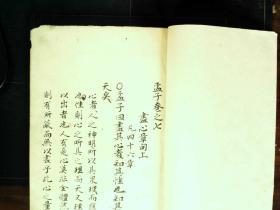 孟子卷之七
盡心章句上
凡四十六章
○孟子曰盡其心者知其性也知其
天矣
心者人之神明所以具眾理而應
也性則心之所具之理而天又
以出者也人有是心莫非全體
則有所蔽而無以盡乎此心之量